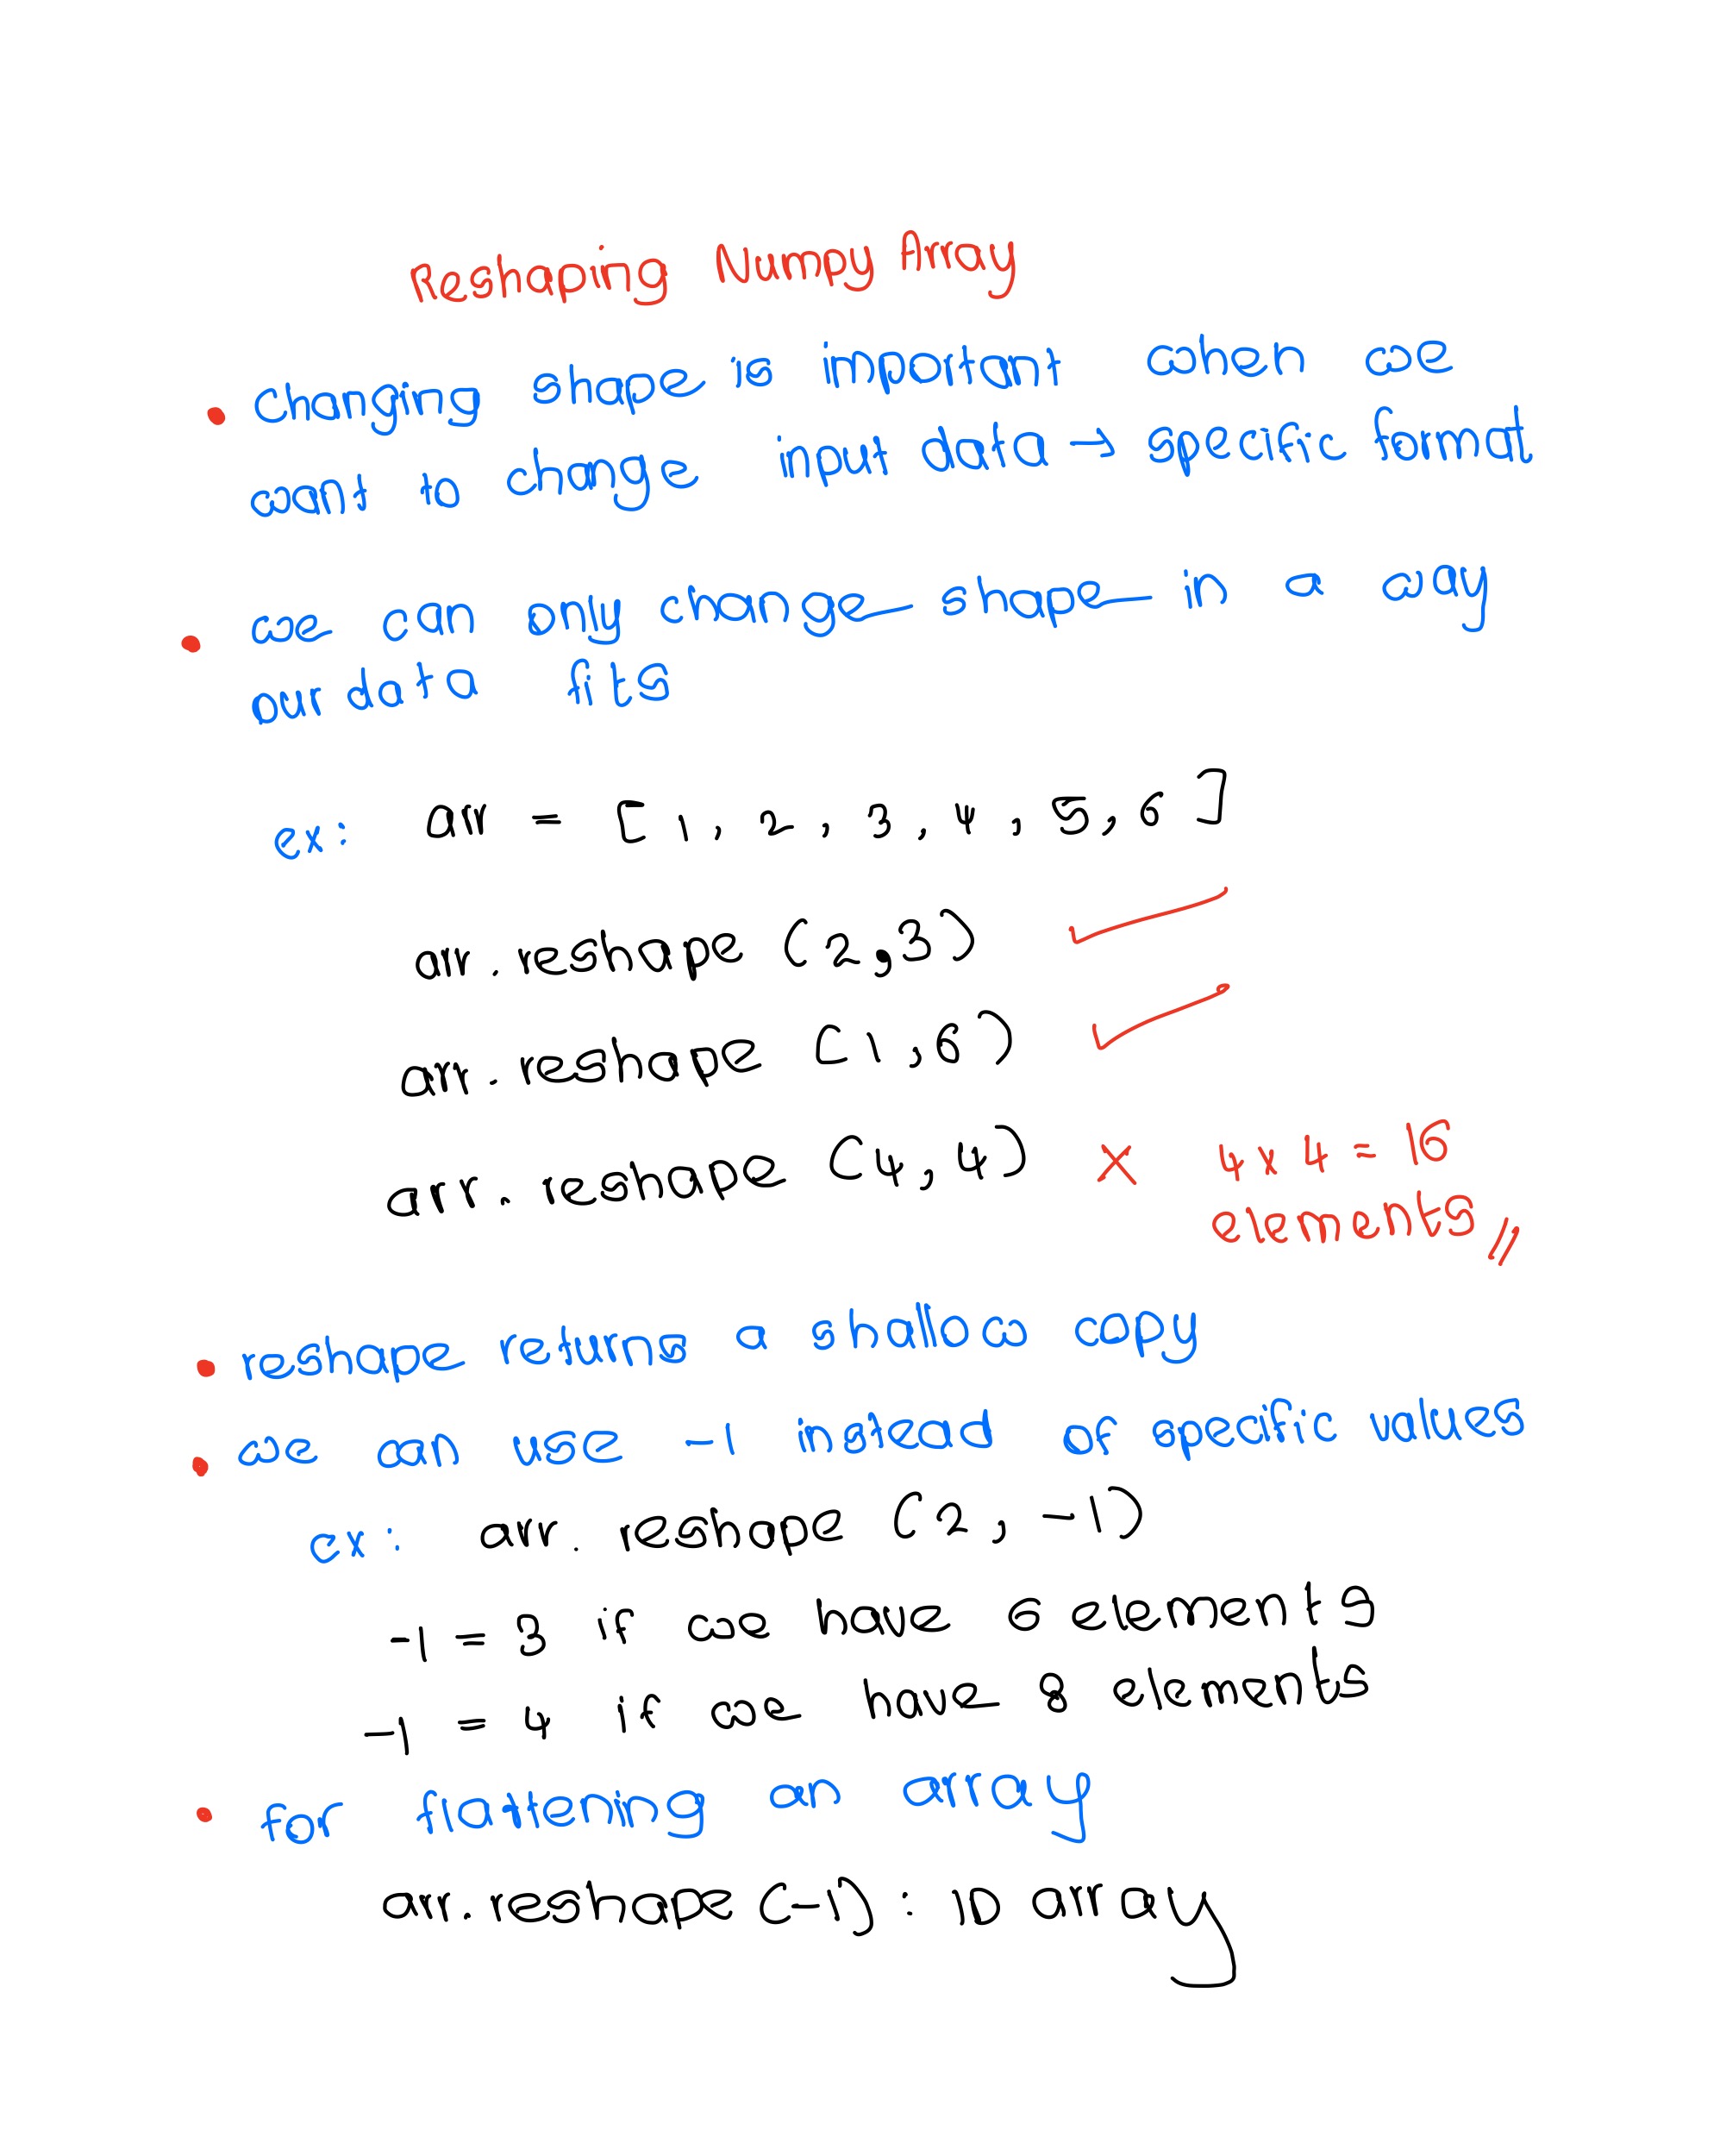 Reshaping Numpy Array
• changing shape is important when we
want to change input data → specific format
• we can only change shape in a way
our data fits
ex: arr = [1, 2, 3, 4, 5, 6]
arr.reshape (2,3) ✓
arr.reshape (1,6) ✓
arr.reshape (4,4) × 4x4 = 16
elements //
• reshape returns a shallow copy
• we can use -1 instead of specific values
ex: arr.reshape (2, -1)
-1 = 3 if we have 6 elements
-1 = 4 if we have 8 elements
• for flattening an array
arr.reshape (-1) : 1D array